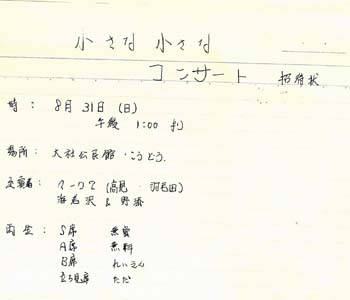 小さな 小さな
コンサート 招待状
時： 8月31日（日）
午後 1:00 より
場所： 大社公民館・こうどう．
出演者： （高見・
海老沢 & 野添
料金： S席 無償
A席 無料
B席 れいえん
立ち見席 ただ